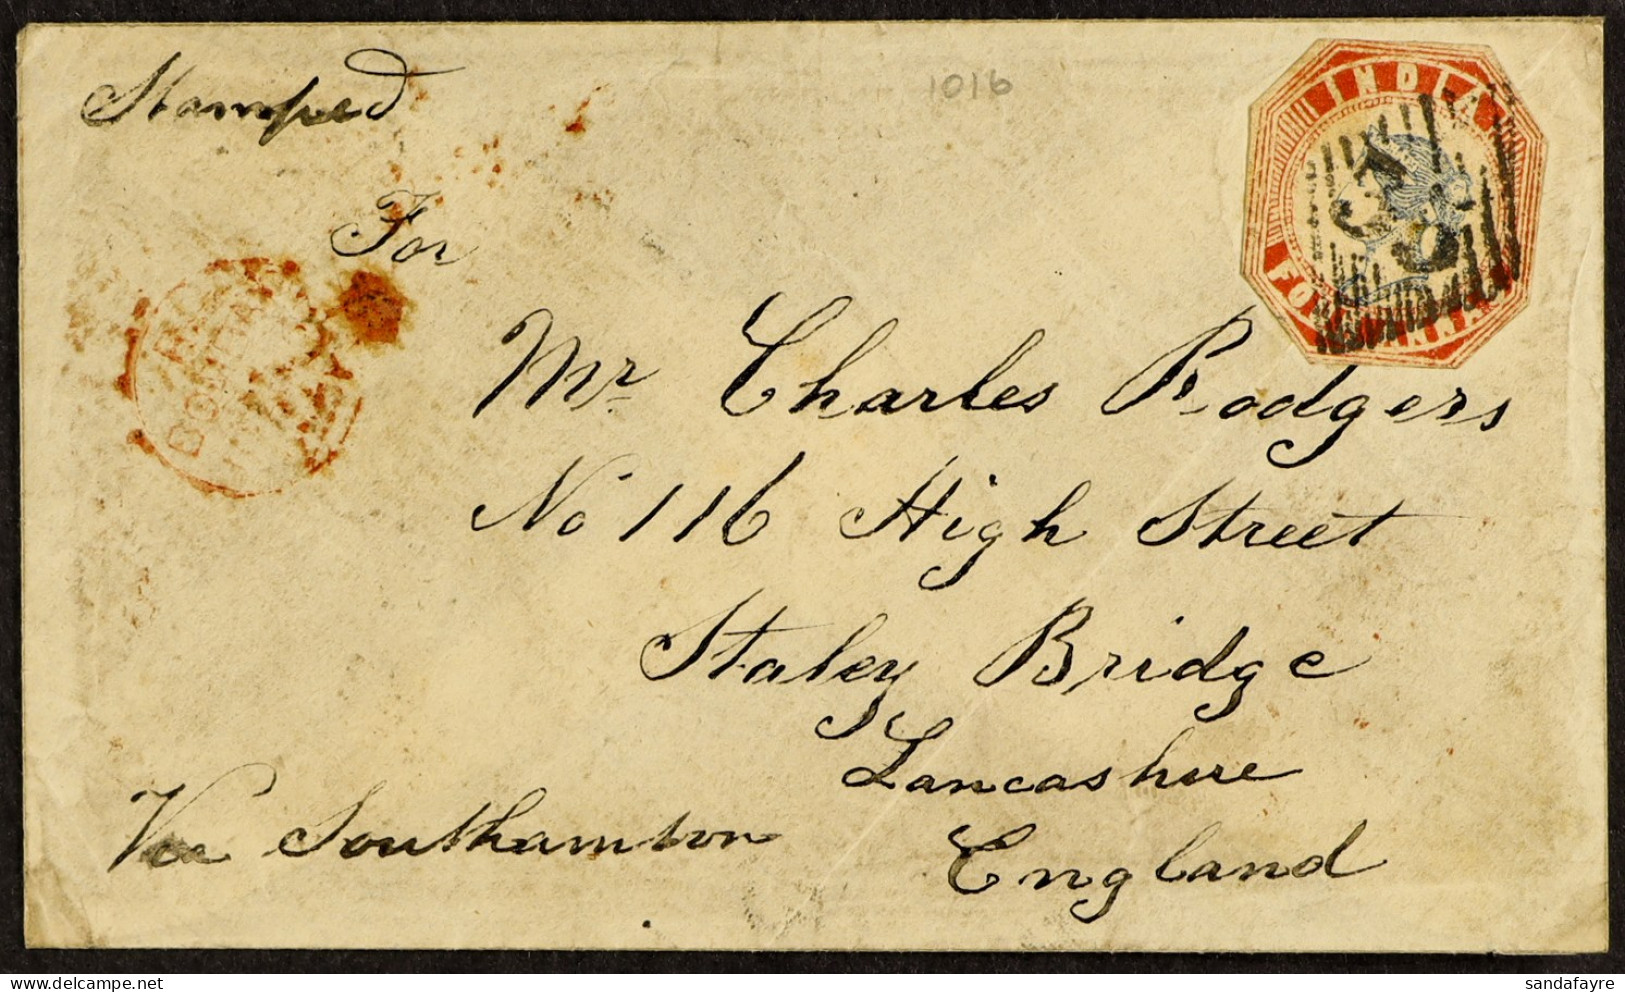 Stamped
1016
INDIA
For
Mr. Charles Rodgers
No 116 High Street
Staley Bridge
Lancashire
England
Via Southampton
sandafayre